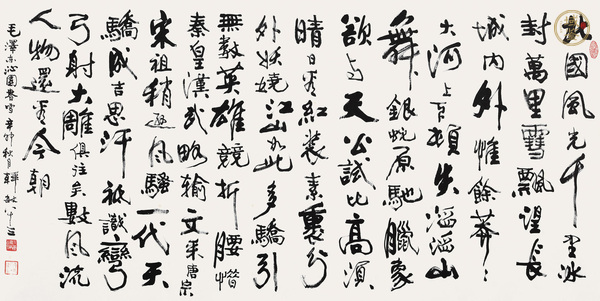 北國風光千里冰
封萬里雪飄望長
城内外惟餘莽〻
大河上下頓失滔滔山
舞銀蛇原馳臘象
欲与天公試比高須
晴日看紅裝素裹分
外妖嬈江山如此多驕引
無數英雄競折腰惜
秦皇漢武略輸文采唐宗
宋祖稍遜風騷一代天
驕成吉思汗祗識彎
弓射大雕俱往矣數風流
人物還看今朝
毛澤东沁園春雪 辛卯秋月